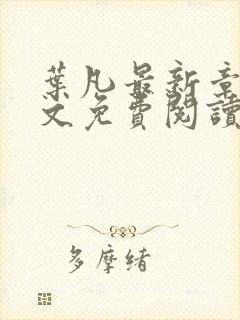 葉凡最新章
文免費閱讀
多摩緒